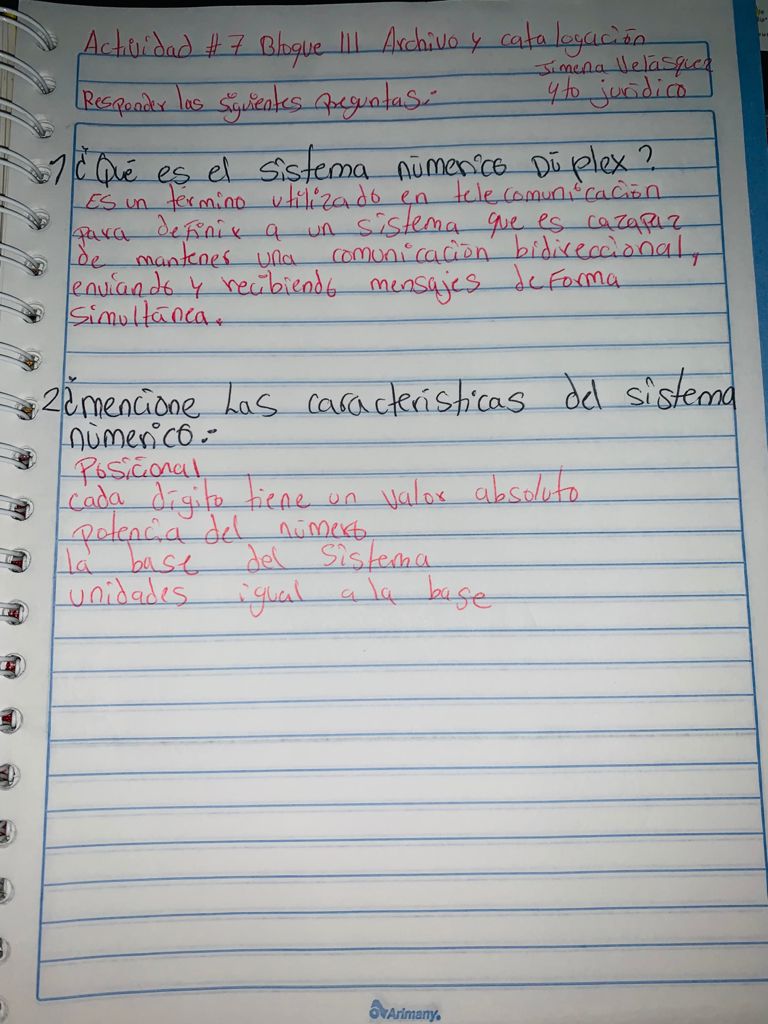 Actividad #7 Bloque III Archivo y catalogación
Jimena Velásquez
Responder las siguientes preguntas:-
4to jurídico
1 ¿Qué es el sistema númerico Dúplex?
Es un término utilizado en telecomunicación
para definir a un sistema que es cazapaz
de mantenes una comunicación bidireccional,
enviando y recibiendo mensajes de forma
simultánea.
2 ¿mencione Las caracteristicas del sistema
númerico.-
Posicional
cada dígito tiene un valor absoluto
potencia del número
la base del sistema
unidades igual a la base
Arimany.